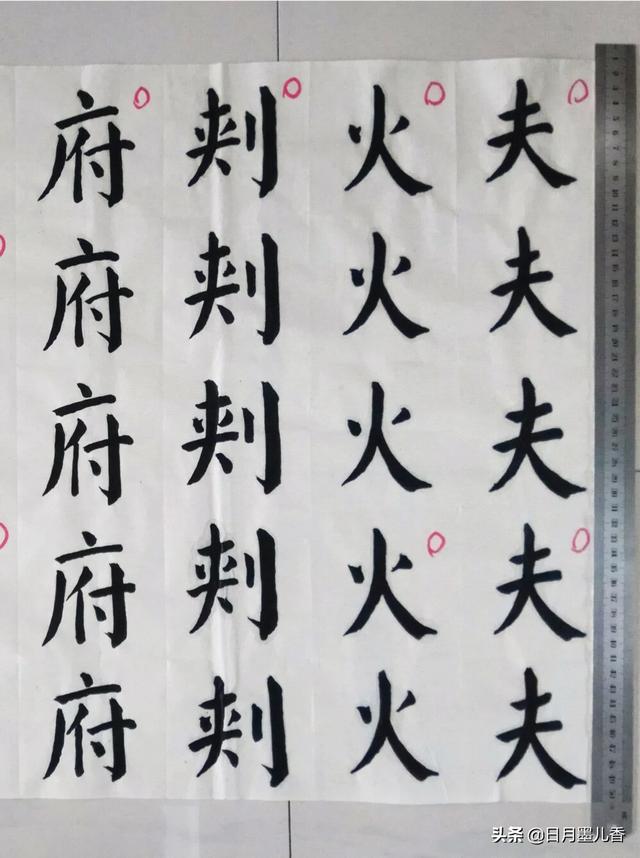 夫夫夫夫夫
火火火火火
刾刾刾刾刾
府府府府府
头条 @日月墨儿香